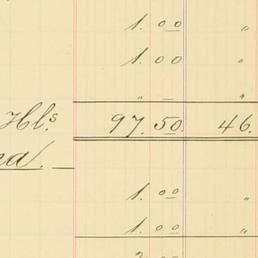 1.00 "
1.00 "
" — "
Hls. 97.50. 46.
1.00 "
1.00 "